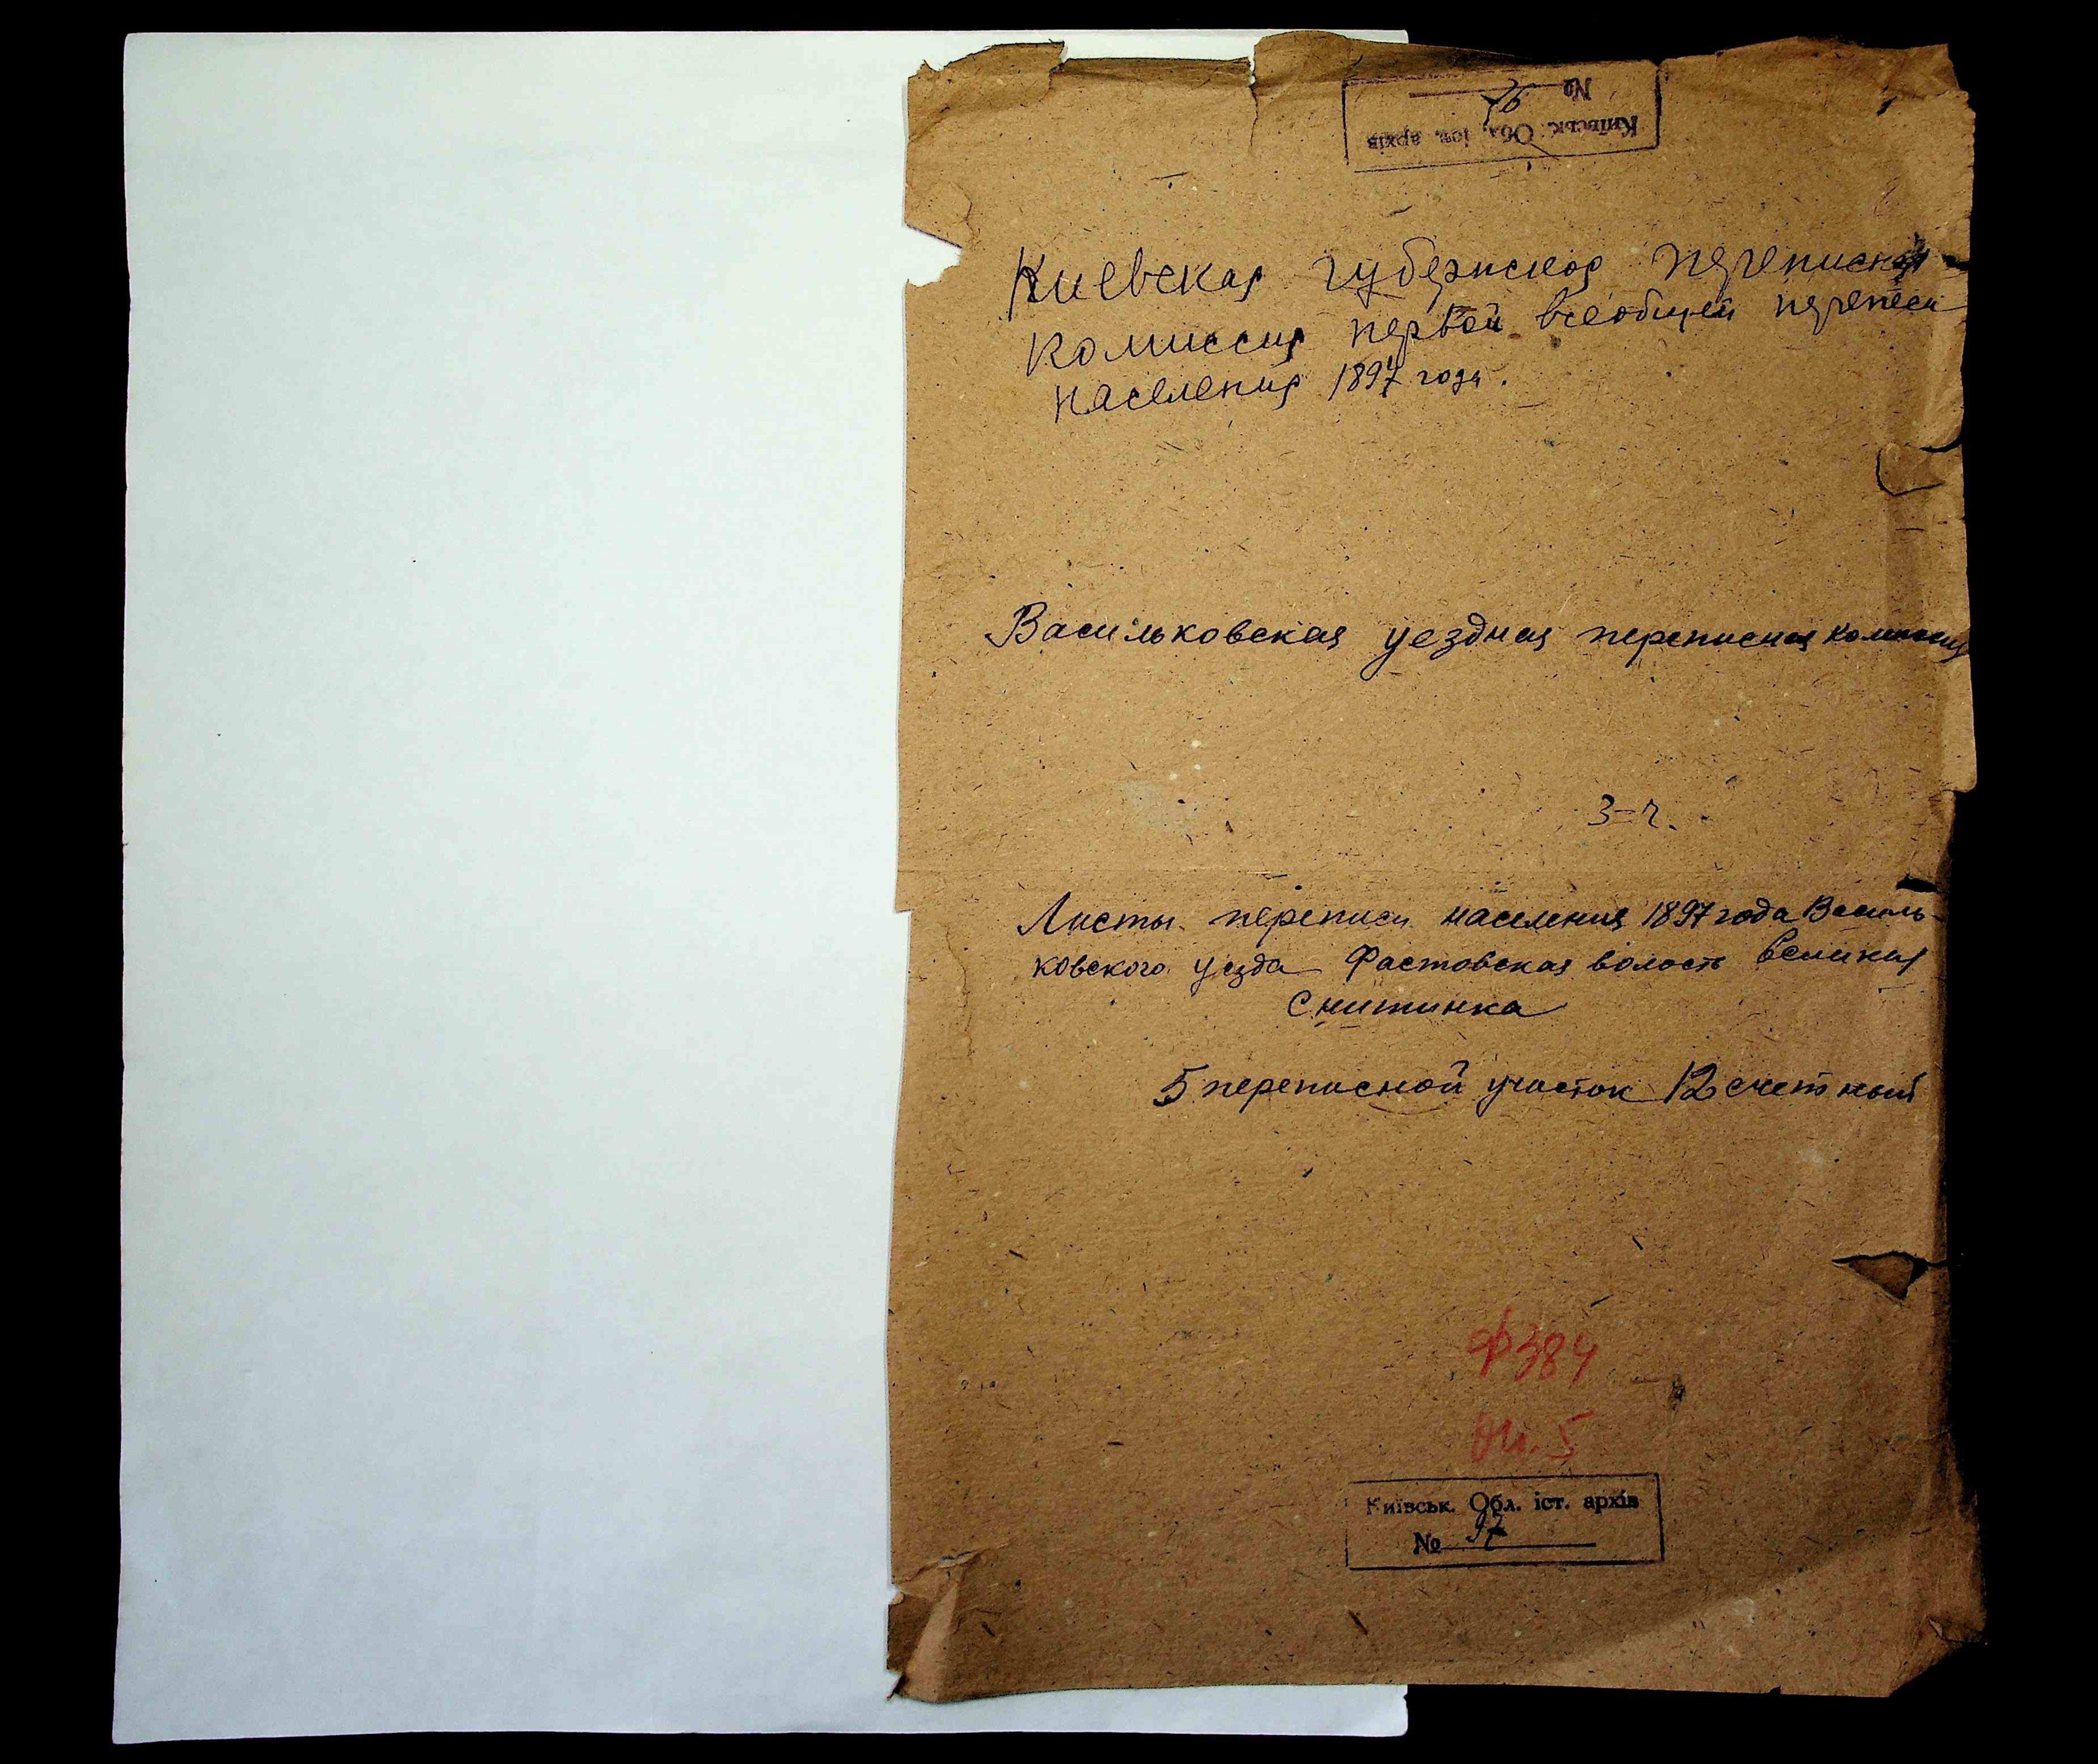 Київськ. Обл. іст. архів
№
Киевская губернская переписная
комиссия первой всеобщей переписи
населения 1897 года.
Васильковская уездная переписная комиссия
3-ч.
Листы переписи населения 1897 года Василь-
ковского уезда Фастовская волость Великая
Снитинка
5 переписной участок 12 счетный
Ф384
Оп. 5
Київськ. Обл. іст. архів
№ 97